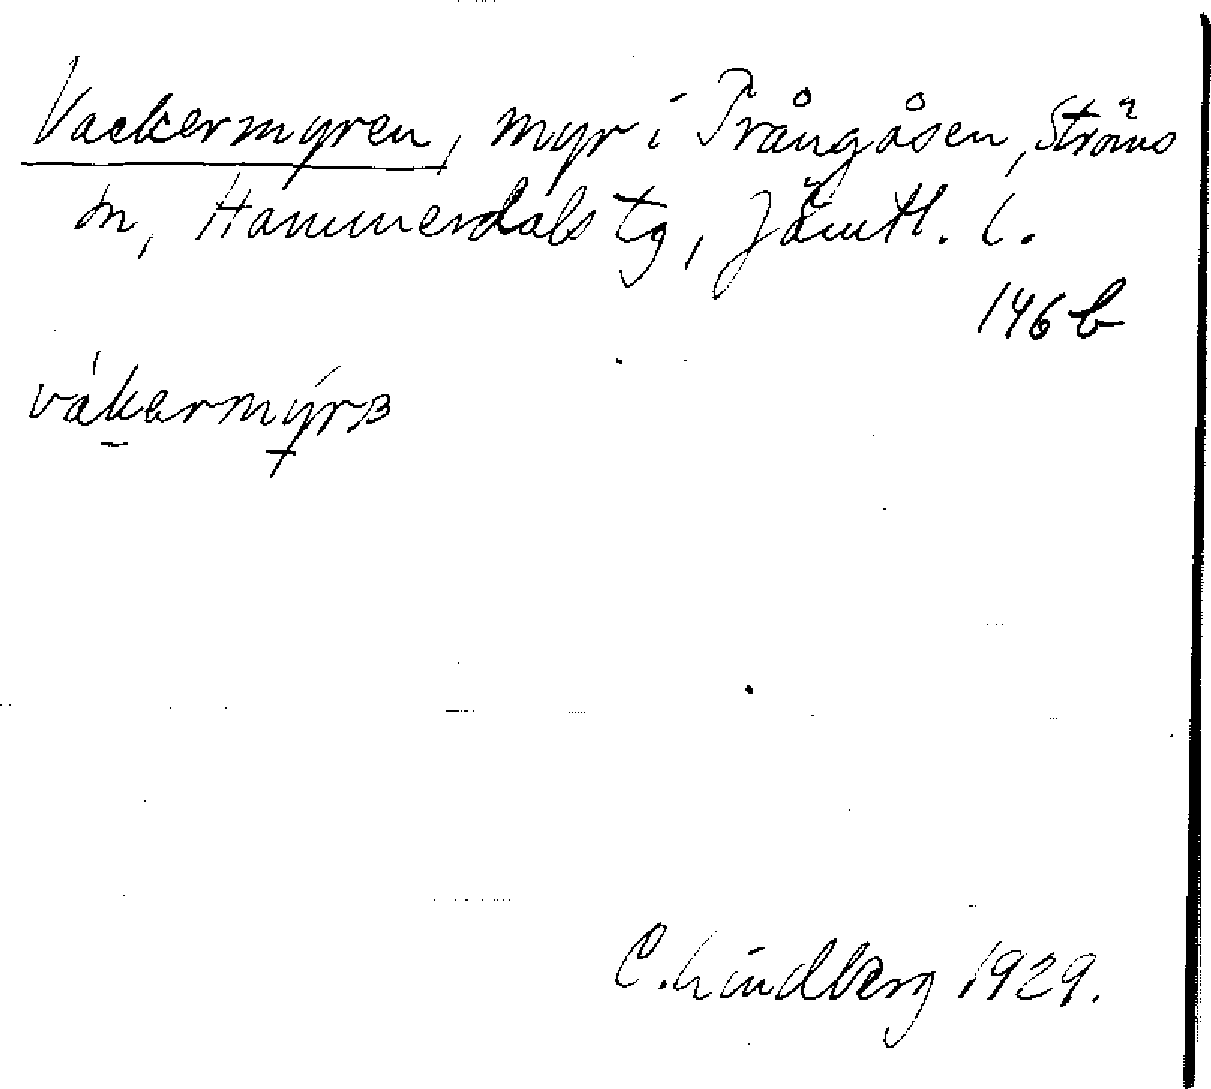 Vackermyren, myr i Trångåsen, Ströms
sn, Hammerdals tg, Jämtl. l.
146 b
vákermýrɜ
C. Lindberg 1929.